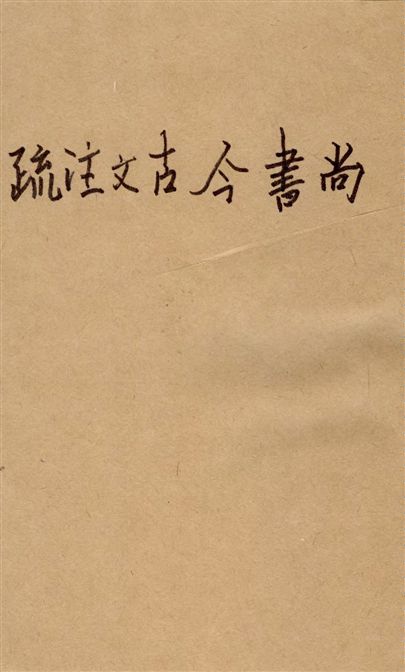 尚書今古文注疏